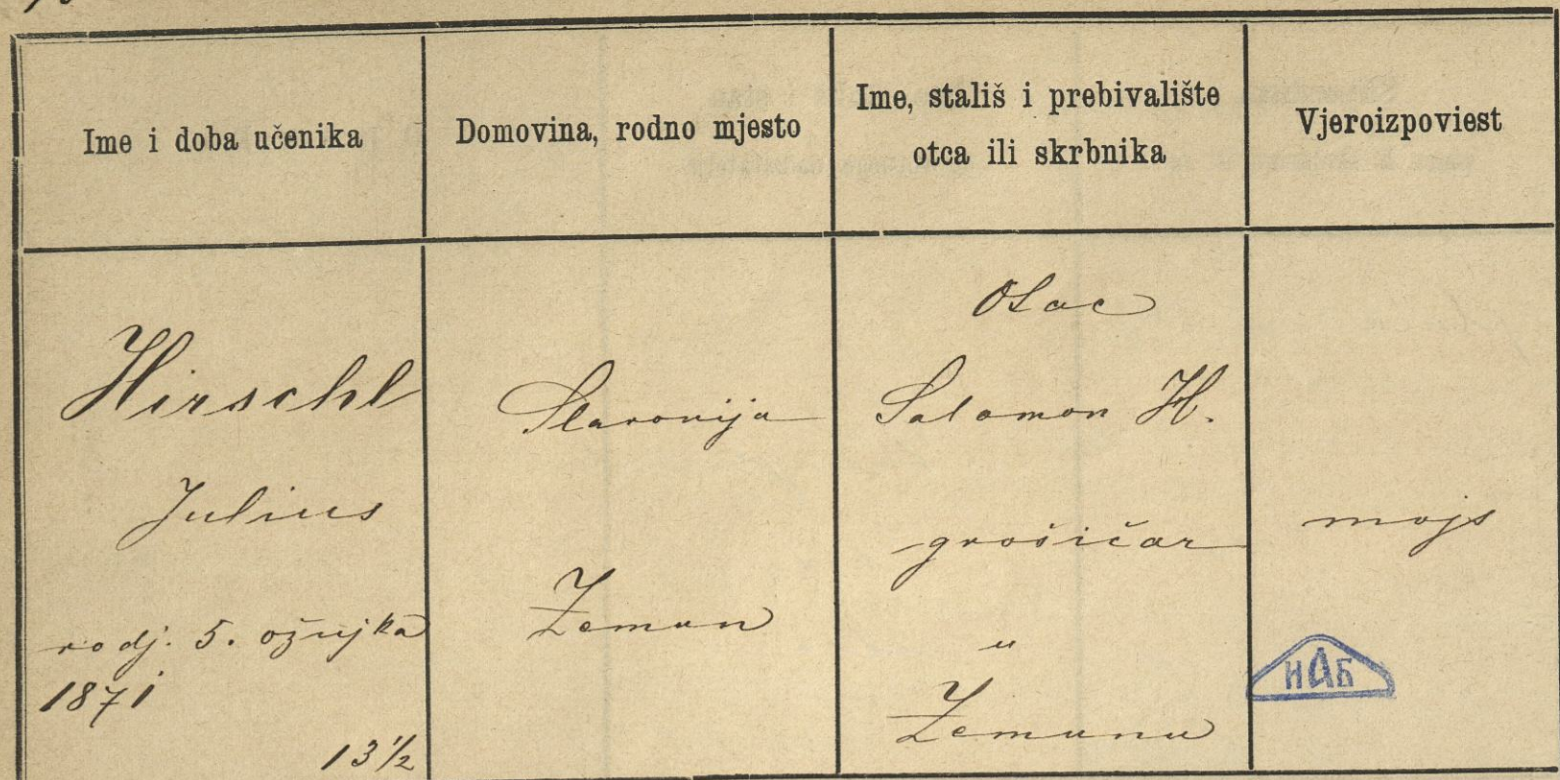 Ime i doba učenika
Domovina, rodno mjesto
Ime, stališ i prebivalište
otca ili skrbnika
Vjeroizpoviest
Hirschl
Julius
rodj. 5. ožujka
1871
13 1/2
Slavonija
Zemun
Otac
Salamon H.
grošičar
u
Zemunu
mojs
НАБ